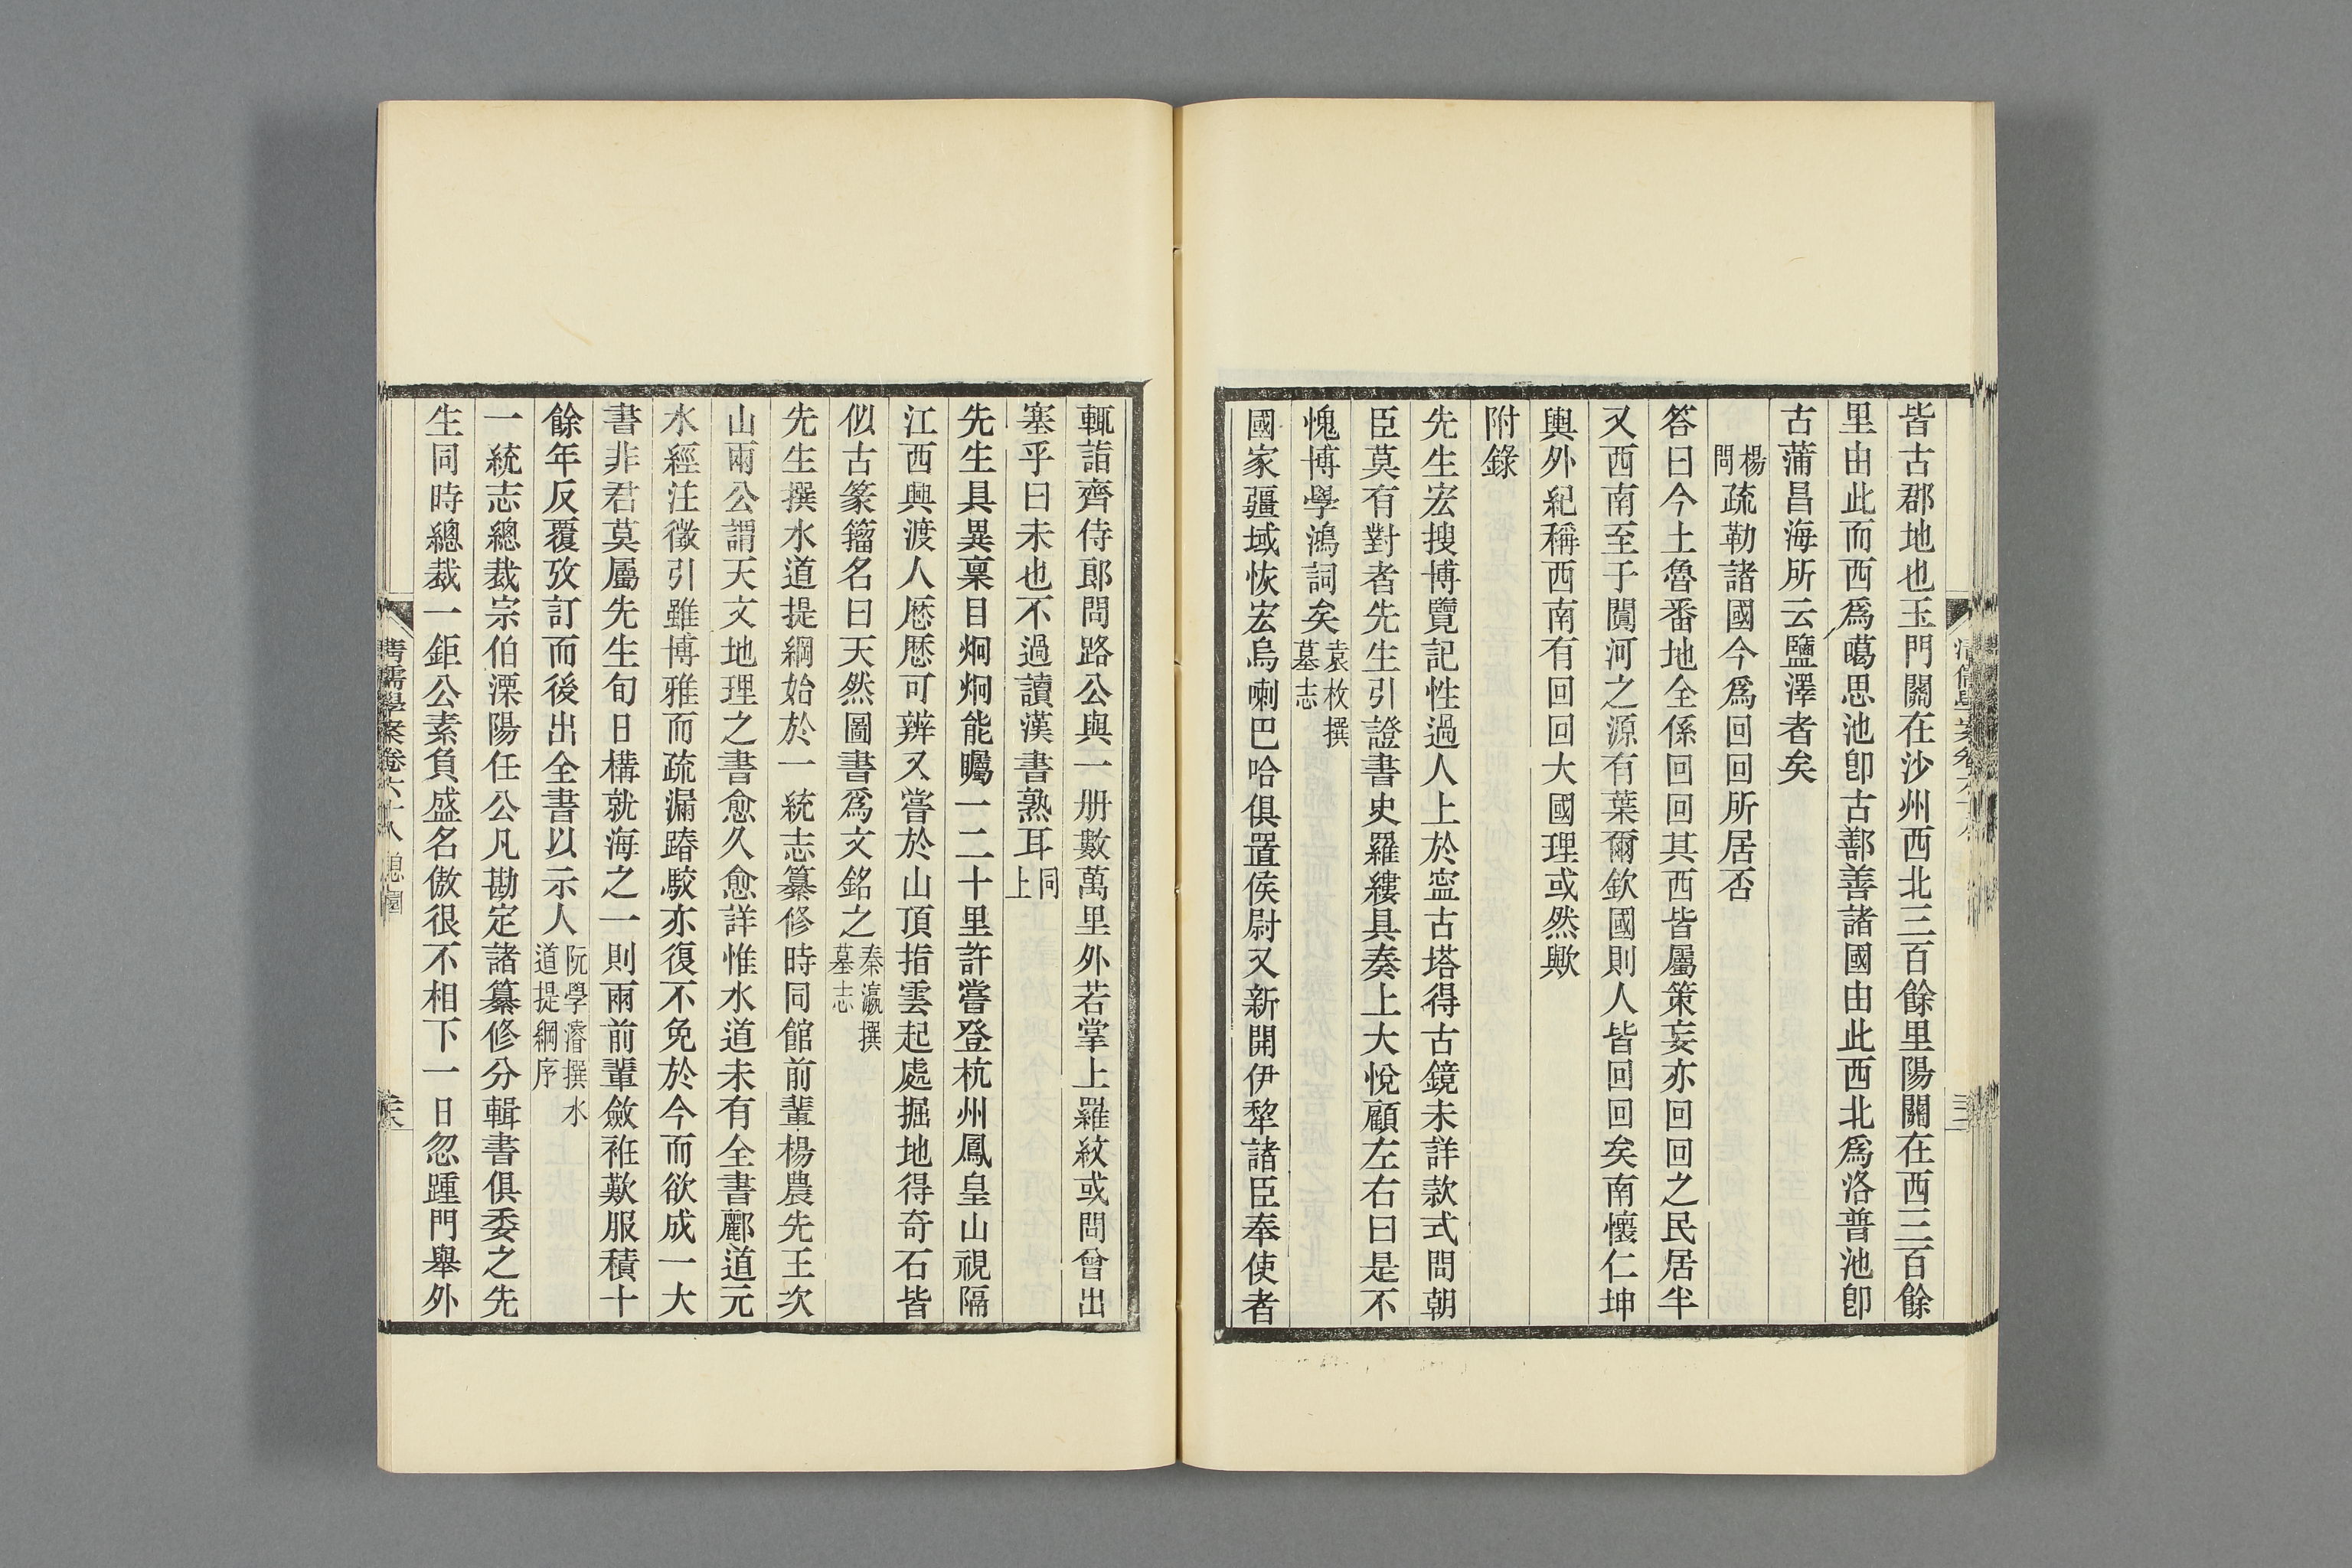 皆古郡地也玉門關在沙州西北三百餘里陽關在西三百餘
里由此而西爲噶思池卽古鄯善諸國由此西北爲洛普池卽
古蒲昌海所云鹽澤者矣
楊問疏勒諸國今爲回回所居否
答曰今土魯番地全係回回其西皆屬策妄亦回回之民居半
又西南至于闐河之源有葉爾欽國則人皆回回矣南懷仁坤
輿外紀稱西南有回回大國理或然歟
附錄
先生宏搜博覽記性過人上於寍古塔得古鏡未詳款式問朝
臣莫有對者先生引證書史羅縷具奏上大悅顧左右曰是不
愧博學鴻詞矣袁枚撰墓志
國家疆域恢宏烏喇巴哈俱置侯尉又新開伊犂諸臣奉使者
輒詣齊侍郎問路公與一册數萬里外若掌上羅紋或問曾出
塞乎曰未也不過讀漢書熟耳同上
先生具異稟目炯炯能矚一二十里許嘗登杭州鳳皇山視隔
江西興渡人厯厯可辨又嘗於山頂指雲起處掘地得奇石皆
似古篆籀名曰天然圖書爲文銘之秦瀛撰墓志
先生撰水道提綱始於一統志纂修時同館前輩楊農先王次
山兩公謂天文地理之書愈久愈詳惟水道未有全書酈道元
水經注徵引雖博雅而疏漏踳駮亦復不免於今而欲成一大
書非君莫屬先生旬日構就海之一則兩前輩斂袵歎服積十
餘年反覆攷訂而後出全書以示人阮學濬撰水道提綱序
一統志總裁宗伯溧陽任公凡勘定諸纂修分輯書俱委之先
生同時總裁一鉅公素負盛名傲很不相下一日忽踵門舉外
清儒學案卷六十八 息園